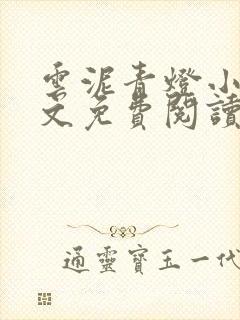 雲泥青燈小
文免費閱讀
通靈寶玉一代